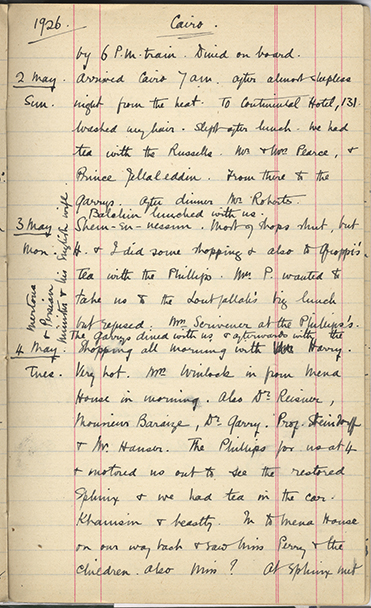 1926. Cairo.
by 6 P.M. train. Dined on board.
2 May. arrived Cairo 7 am. after almost sleepless
Sun. night from the heat. To Continental Hotel, 131.
Washed my hair. Slept after lunch. We had
tea with the Russells. Mr & Mrs Pearce, &
Prince Jellaleddin. From there to the
Garrys. After dinner Mr Roberts.
Baloshin lunched with us.
3 May. Shem-en-nessim. Most of shops shut, but
Mon. H. & I did some shopping & also to Groppi's
tea with the Phillips. Mrs P. wanted to
take us to the Loutfallah's big lunch
but refused. Mrs Scrivener at the Phillips's.
The Garrys dined with us & afterwards with the
Mertons & Persian
Minister & his English wife.
4 May Shopping all morning with Harry.
Tues. Very hot. Mrs Winlock in from Mena
House in morning. Also Dr Reisner,
Monsieur Baraize, Dr Garry. Prof. Steindorff
& Mr Hauser. The Phillips for us at 4
& motored us out to see the restored
Sphinx & we had tea in the car.
Khamsin & beastly. In to Mena House
on our way back & saw Miss Perry & the
children. Also Miss ? At Sphinx met